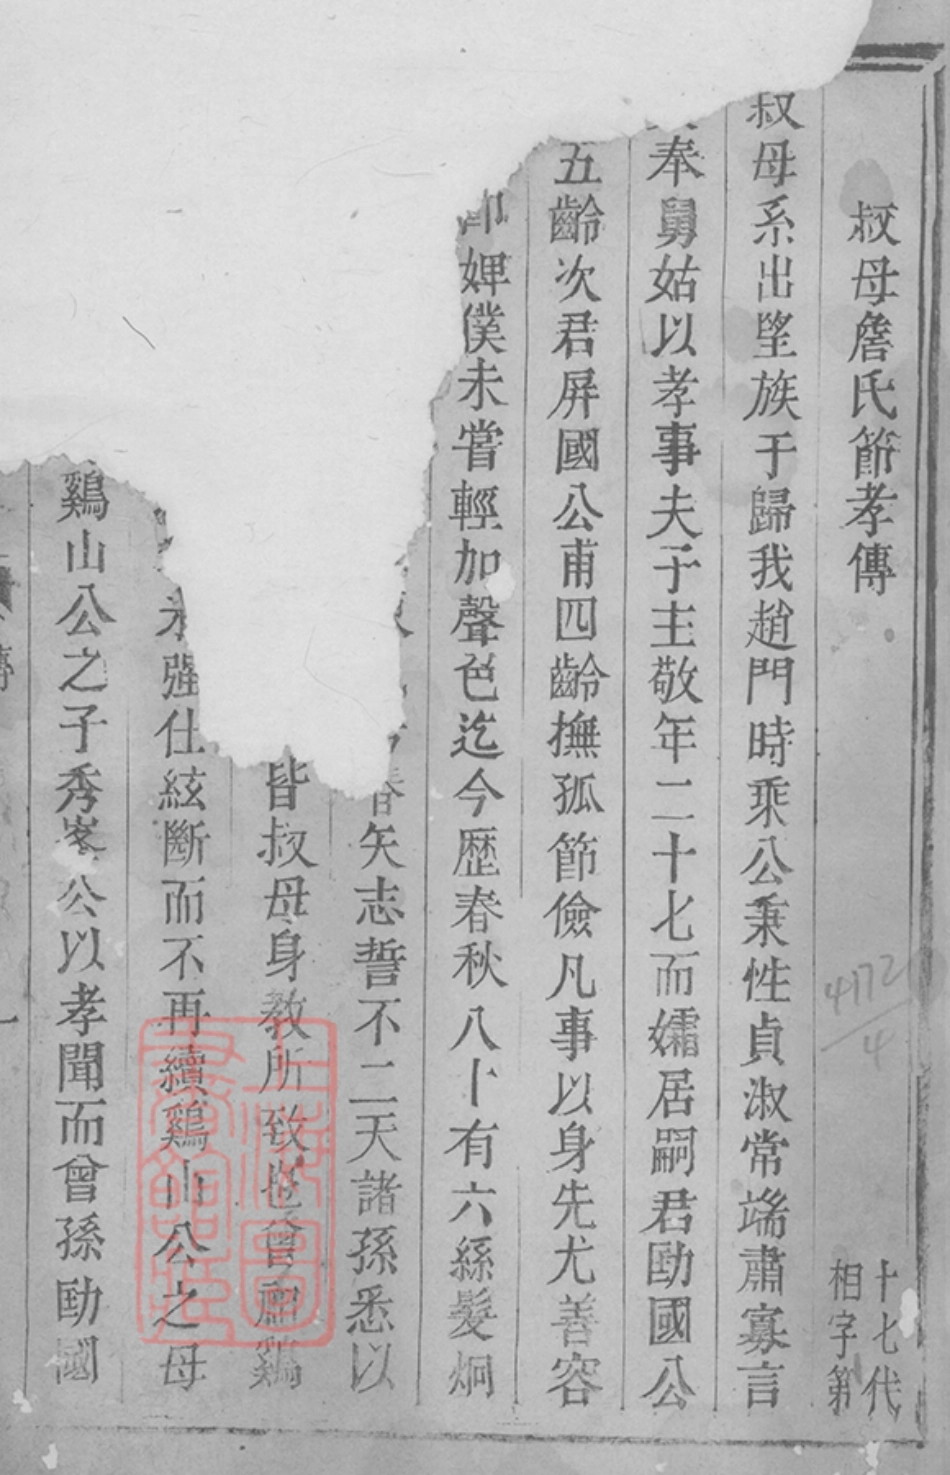 叔母詹氏節孝傳
十七代
相字第
叔母系出望族于歸我趙門時乘公秉性貞淑常端肅寡言
奉舅姑以孝事夫子主敬年二十七而孀居嗣君勛國公
五齡次君屏國公甫四齡撫孤節儉凡事以身先尤善容
婢僕未嘗輕加聲色迄今歷春秋八十有六絲髮炯
矢志誓不二天諸孫悉以
皆叔母身教所致也曾 鷄
強仕絃斷而不再續鷄山公之母
鷄山公之子秀峯公以孝聞而曾孫勛國
傳
一
4172
4
上海圖書館藏